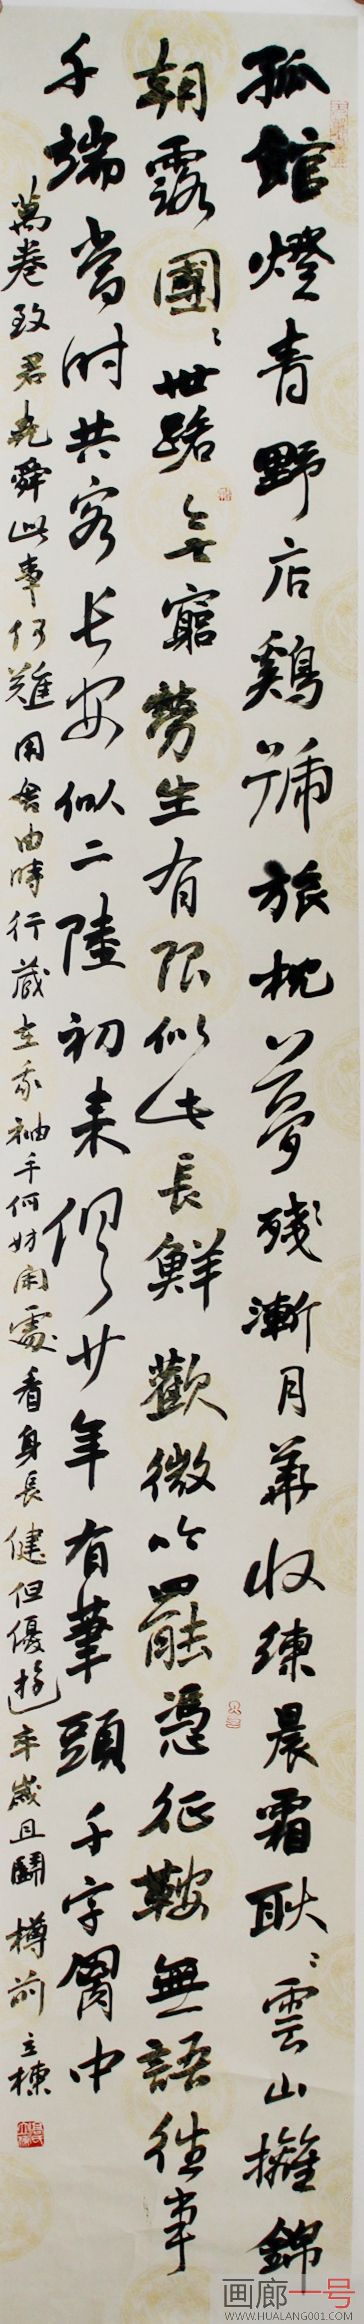 孤館燈青野店鷄號旅枕夢殘漸月華收練晨霜耿〻雲山錦
朝露團〻世路無窮勞生有限似此長鮮歡微吟罷憑征鞍無語往事
千端當时共客長安似二陸初来俱少年有筆頭千字胷中
萬卷致君堯舜此事何難用舍由時行藏在我袖手何妨閑處看身長健但優游卒歲且鬭樽前 立棟
画廊一号
WWW.HUALANG001.COM